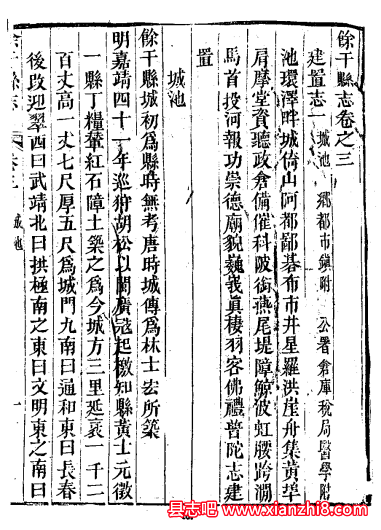 餘干縣志卷之三
建置志一 城池 鄉都市鎮附 公署倉庫稅局醫學附
池環澤畔城倚山阿都鄙碁布市井星羅洪崖舟集黃埠
肩摩堂資聽政倉備催科陂銜燕尾堤障鯨波虹腰跨澗
馬首投河報功崇德廟貌巍峩眞棲羽客佛禮普陀志建
置
城池
餘干縣城初爲縣時無考唐時城傳爲林士宏所築
明嘉靖四十一年巡狩胡松以閩廣冦起檄知縣黃士元徵
一縣丁糧輦紅石障土築之爲今城方三里延袤一千二
百丈高一丈七尺厚五尺爲城門九南曰通和東曰長春
後改迎翠西曰武靖北曰拱極南之東曰文明東之南曰
餘干縣志
卷三
城池
一
县志吧 www.xianzhi8.com